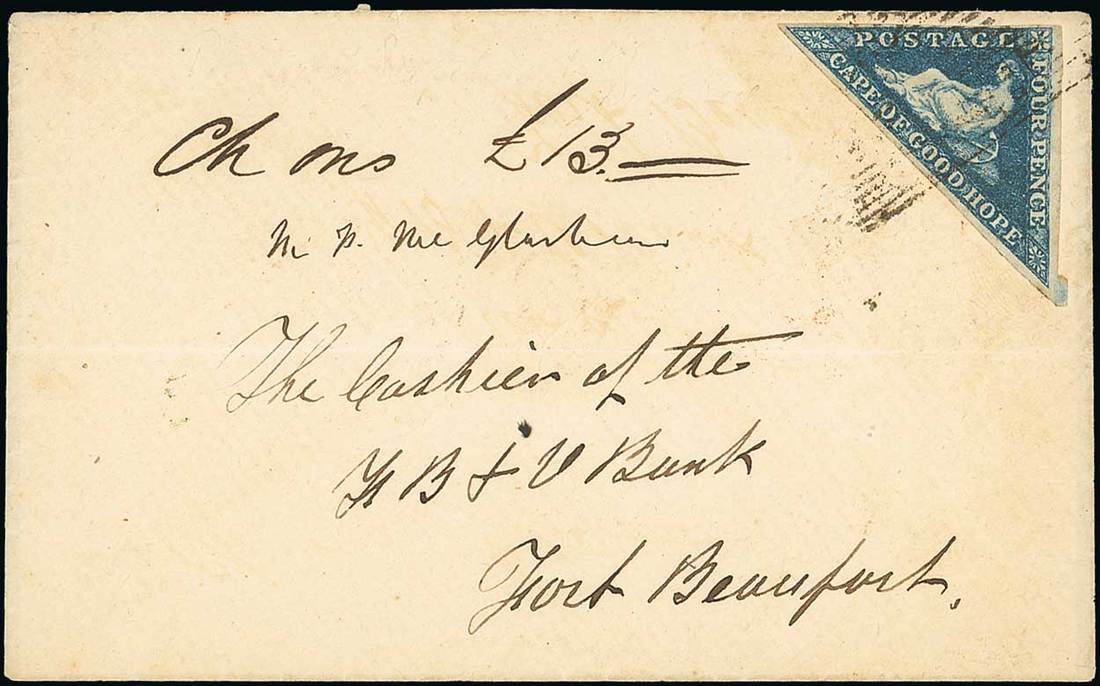 POSTAGE
CAPE OF GOOD HOPE
FOUR PENCE
Ch ons £13.
Mc Glashan
The Cashier of the
F B & V Bank
Fort Beaufort.